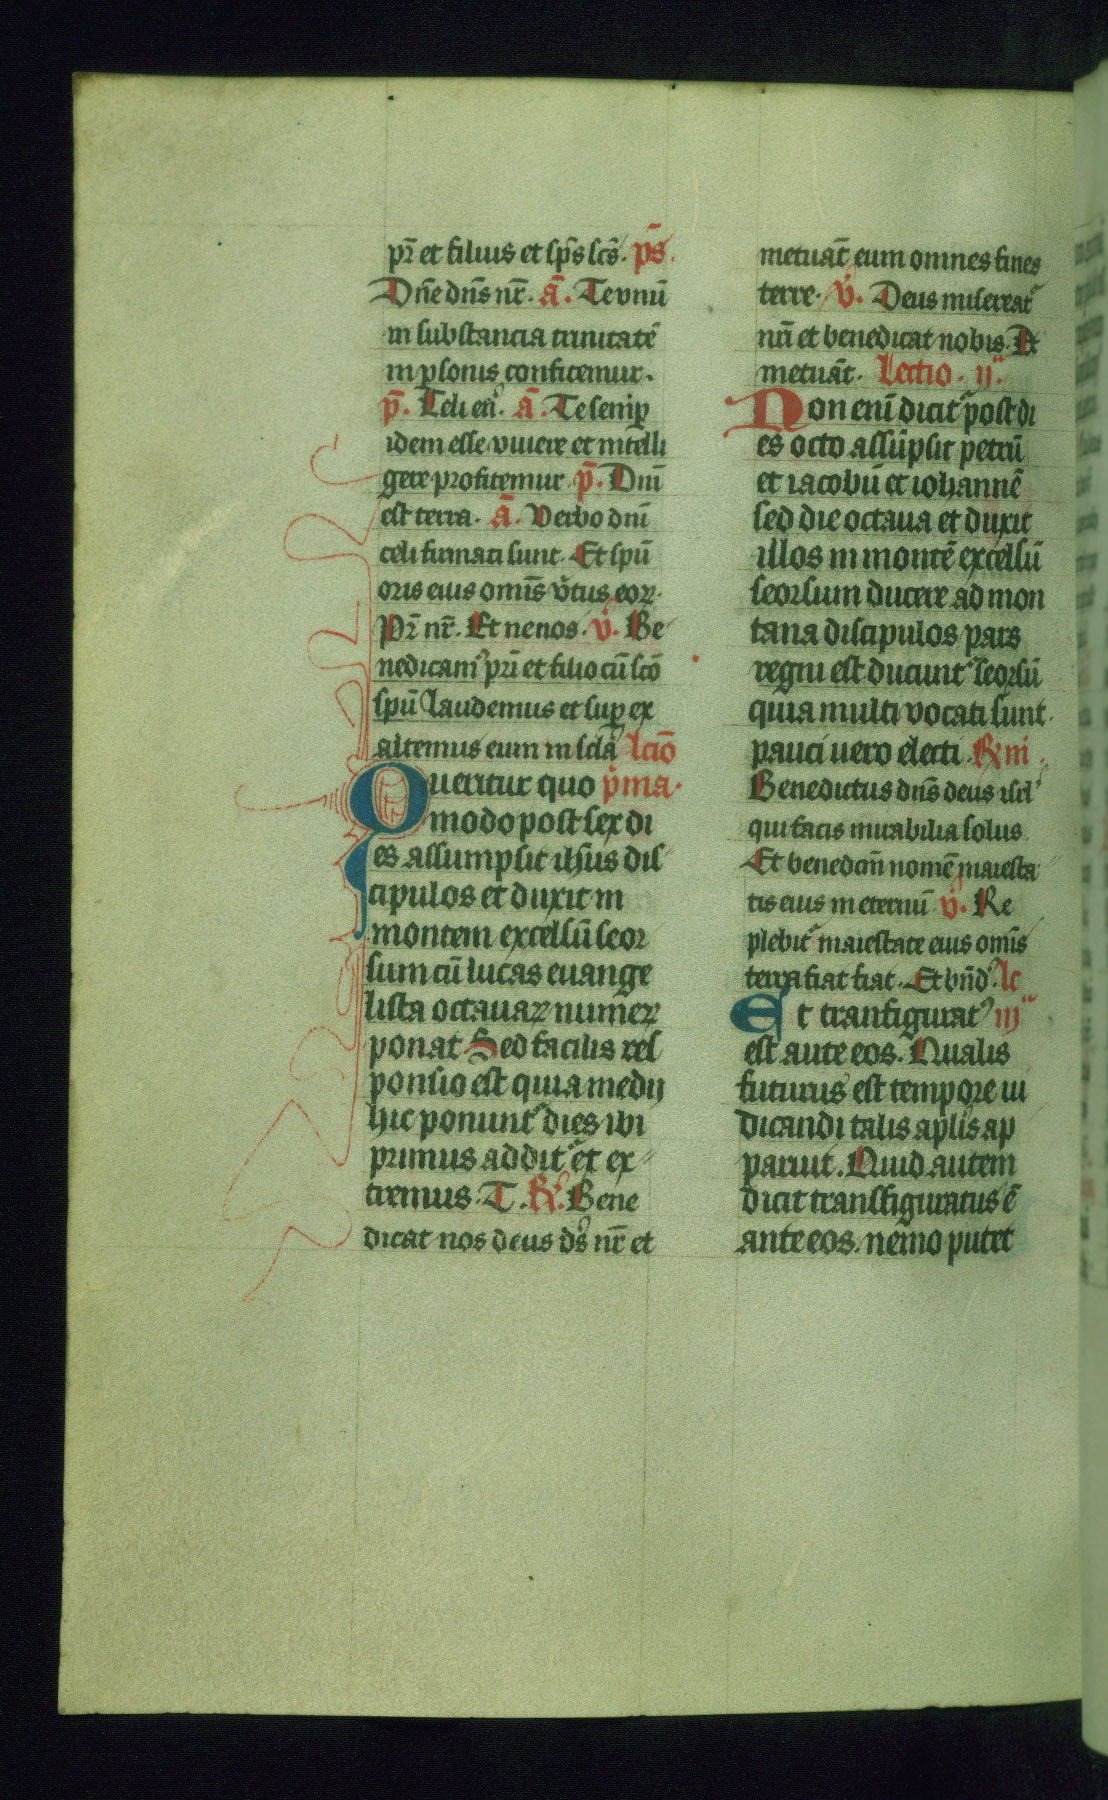 pr̄ et filius et sp̄s sc̄s. p̄s.
Dn̄e dn̄s nr̄. ā. Te vnū
in substancia trinitatē
in ꝑsonis confitemur.
p̄. Celi en̄. ā. Te semꝑ
idem esse viuere et intelli
gere profitemur p̄. Dn̄i
est terra. ā. Verbo dn̄i
celi firmati sunt. Et spū
oris eius om̄is v̄tus eoꝝ.
Pr̄ nr̄. Et ne nos. v̄. Be
nedicam᷒ pr̄i et filio cū sc̄o
spū Laudemus et suꝑ ex
altemus eum in scl̄a lcīo
Queritur quo p̄ma.
modo post sex di
es assumpsit ihūs dis
cipulos et duxit in
montem excelsū seor
sum cū lucas euange
lista octauaꝝ numeꝝ
ponat Sed facilis res
ponsio est quia medij
hic ponunt᷑ dies ibi
primus addit᷑ et ex
tremus. T. ℟. Bene
dicat nos deus ds̄ nr̄ et
metuāt eum omnes fines
terre. v̄. Deus misereat᷑
nr̄i et benedicat nobis. Et
metuāt. Lectio. ij.
Non enī dicit᷑ post di
es octo assūpsit petrū
et iacobū et iohannē
sed die octaua et duxit
illos in montē excelsū
seorsum ducere ad mon
tana discipulos pars
regni est ducunt᷑ seorsū
quia multi vocati sunt.
pauci uero electi. ℟ iij.
Benedictus dn̄s deus isrl̄
qui facis mirabilia solus
Et benedc̄m nomē maiesta
tis eius in eternū v̄. Re
plebit᷑ maiestate eius om̄is
terra fiat fiat. Et bn̄d. lc
Et transfigurat᷒ iij
est ante eos. Qualis
futurus est tempore iu
dicandi talis apl̄is ap
paruit. Quid autem
dicit transfiguratus ē
ante eos. nemo putet